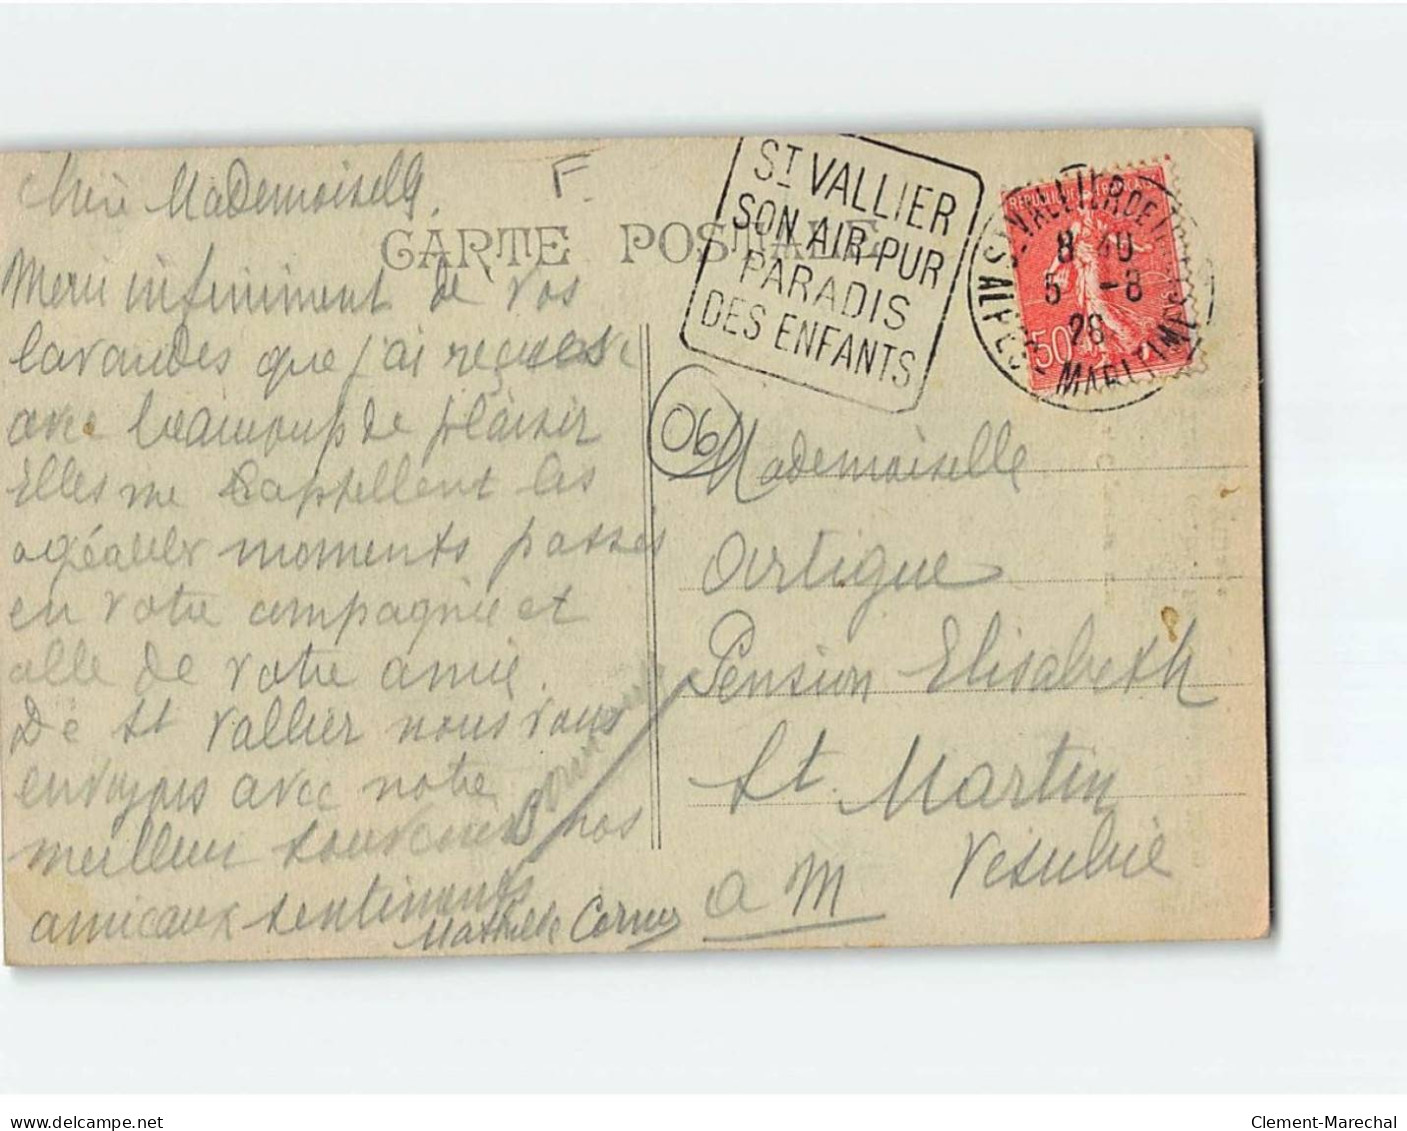 Chère Mademoiselle,
F.
CARTE POSTALE
Merci infiniment de vos
lavandes que j'ai reçues
avec beaucoup de plaisir
Elles me rappellent les
agéables moments passés
en votre compagnie et
celle de votre amie.
De St Vallier nous vous
envoyons avec notre
meilleur souvenir nos
amicaux sentiments
Mathilde
ST VALLIER
SON AIR PUR
PARADIS
DES ENFANTS
ST VALLIER DE THIEY
8 30
5 -8
28
ALPES MARITIMES
REPUBLIQUE FRANÇAISE
50
06
Mademoiselle
Artigue
Pension Elisabeth
St. Martin
Vesubie
a M
delcampe.net
Clement-Marechal